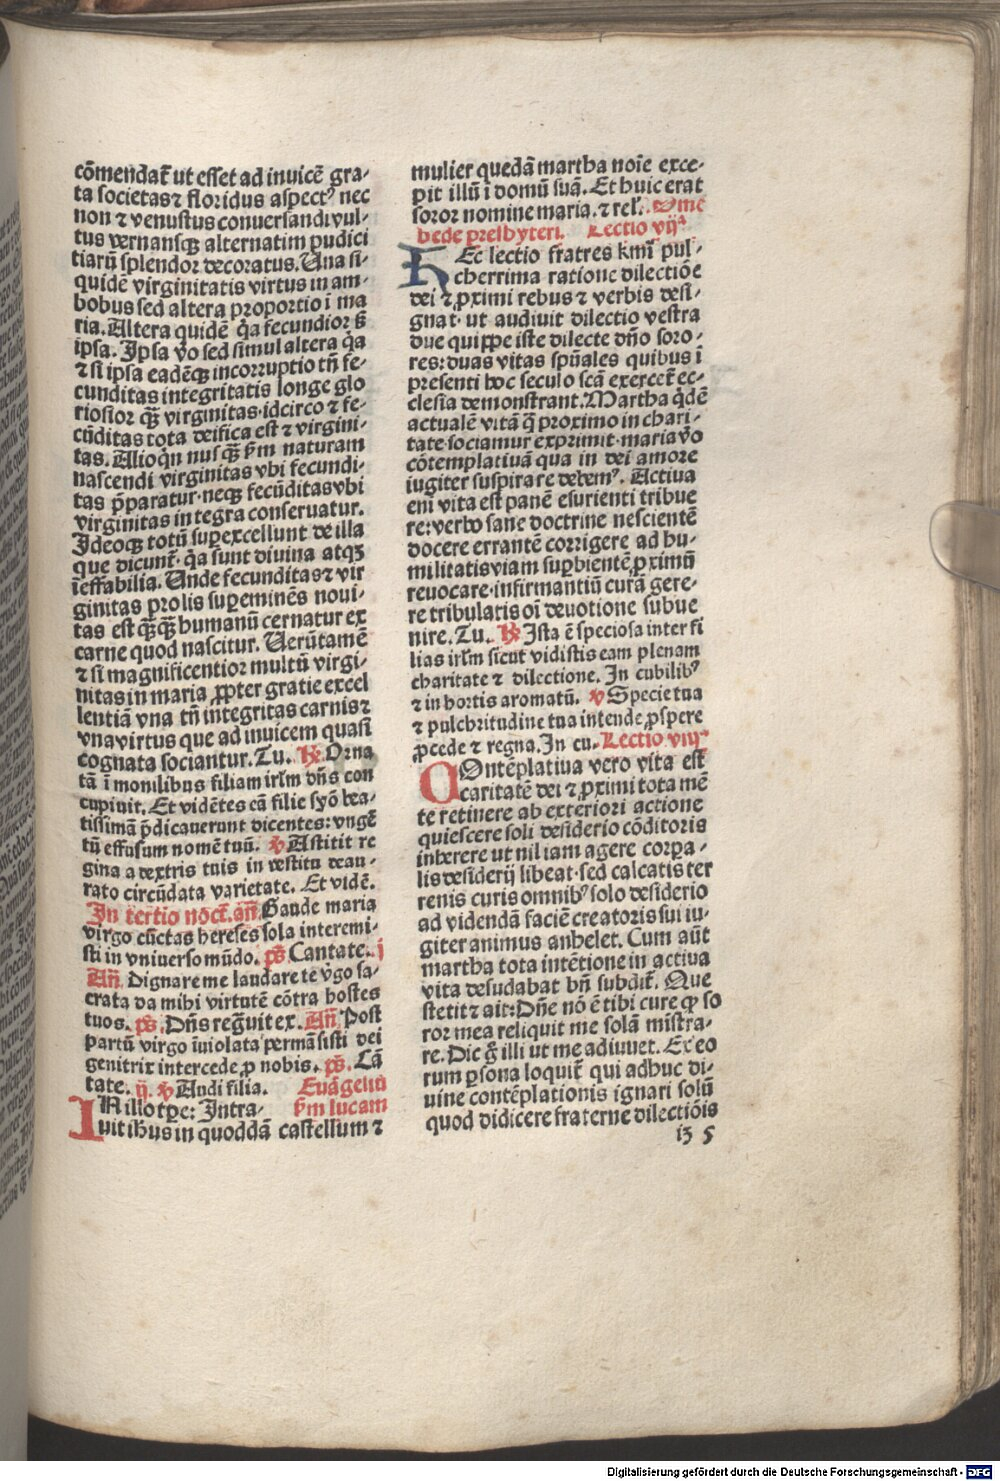 cōmendat̄ ut esset ad invicē gra-
ta societas ⁊ floridus aspectꝰ nec
non ⁊ venustus conversandi vul-
tus vernansqꝫ alternatim pudici
tiarū splendor decoratus. Una si-
quidē virginitatis virtus in am-
bobus sed altera proportio ī ma
ria. Altera quidē q̇a fecundior s̄
ipsa. Ipsa v̊o sed simul altera q̇a
⁊ si ipsa eadēqꝫ incorruptio tn̄ fe-
cunditas integritatis longe glo
riosior qꝫ̄ virginitas·idcirco ⁊ fe-
cūditas tota deifica est ⁊ virgini-
tas. Alioqn̄ nusqꝫ̄ ẜm naturam
nascendi virginitas vbi fecundi-
tas p̄paratur·neqꝫ fecūditas vbi
virginitas integra conservatur.
Ideoqꝫ totū suꝑexcellunt de illa
que dicunt̄· q̇a sunt divina atqꝫ
īeffabilia. Unde fecunditas ⁊ vir
ginitas prolis suꝑeminēs novi-
tas est qꝫ̄qꝫ̄ humanū cernatur ex
carne quod nascitur. Verūtamē
⁊ si magnificentior multū virgi-
nitas in maria ꝓpter gratie excel
lentiā vna tn̄ integritas carnis ⁊
vna virtus que ad invicem quasi
cognata sociantur. Tu. ℟ Orna
tā ī monilibus filiam irl̄m dn̄s con
cupivit. Et vidētes eā filie syō bea-
tissimā p̄dicaverunt dicentes: vngē
tū effusum nomē tuū. ℣ Astitit re
gina a dextris tuis in vestitu deau-
rato circūdata varietate. Et vidē.
In tertio noct̄. an̄ Gaude maria
virgo cūctas hereses sola interemi-
sti in vniverso mūdo. ps̄ Cantate. i
An̄ Dignare me laudare te v̊go sa-
crata da mihi virtutē cōtra hostes
tuos. ps̄. Dn̄s regͣvit ex. An̄ Post
partū virgo īviolata permāsisti dei
genitrix intercede ꝓ nobis. ps̄. Cā
tate. ij. ℣ Audi filia. Evāgeliū
IN illo tꝑe: Intra- ẜm lucam
vit ihus in quoddā castellum ⁊
mulier quedā martha noīe exce-
pit illū ī domū suā. Et huic erat
soror nomine maria. ⁊ rel̄. Ome
bede presbyteri. Lectio vijᵃ
HEc lectio fratres kmī pul-
cherrima ratione dilectiōe
dei ⁊ ꝓximi rebus ⁊ verbis desi-
gnat· ut audivit dilectio vestra
due quippe iste dilecte dn̄o soro-
res: duas vitas spūales quibus ī
presenti hoc seculo scā exercet̄ ec-
clesia demonstrant. Martha q̇dē
actualē vitā q̄ proximo in chari-
tate·sociamur exprimit·maria v̊o
cōtemplativā qua in dei amore
iugiter suspirare debemꝰ. Activa
eni vita est panē esurienti tribue
re: verbo sane doctrine nescientē
docere errantē corrigere ad hu-
militatis viam suꝑbientē ꝓximū
revocare·infirmantiū curā gere-
re tribulatis oī devotione subve
nire. Tu. ℟ Ista ē speciosa inter fi
lias irl̄m sicut vidistis eam plenam
charitate ⁊ dilectione. In cubilibꝰ
⁊ in hortis aromatū. ℣ Specie tua
⁊ pulchritudine tua intende ꝓspere
ꝓcede ⁊ regna. In cu. Lectio viijᵃ
COntēplativa vero vita est
caritatē dei ⁊ ꝓximi tota mē
te retinere ab exteriori actione
quiescere soli desiderio cōditoris
inherere ut nil iam agere corꝑa-
lis desiderij libeat·sed calcatis ter
renis curis omnibꝰ solo desiderio
ad videndā faciē creatoris sui iu-
giter animus anhelet. Cum aūt
martha tota intētione in activa
vita desudabat bn̄ subdit̄. Que
stetit ⁊ ait: Dn̄e nō ē tibi cure qꝫ so
ror mea reliquit me solā mīstra-
re. Dic g̊ illi ut me adiuvet. Ex eo
rum ꝑsona loquit̄ qui adhuc di-
vine contēplationis ignari solū
quod didicere fraterne dilectiōis
i3 5
Digitalisierung gefördert durch die Deutsche Forschungsgemeinschaft - DFG